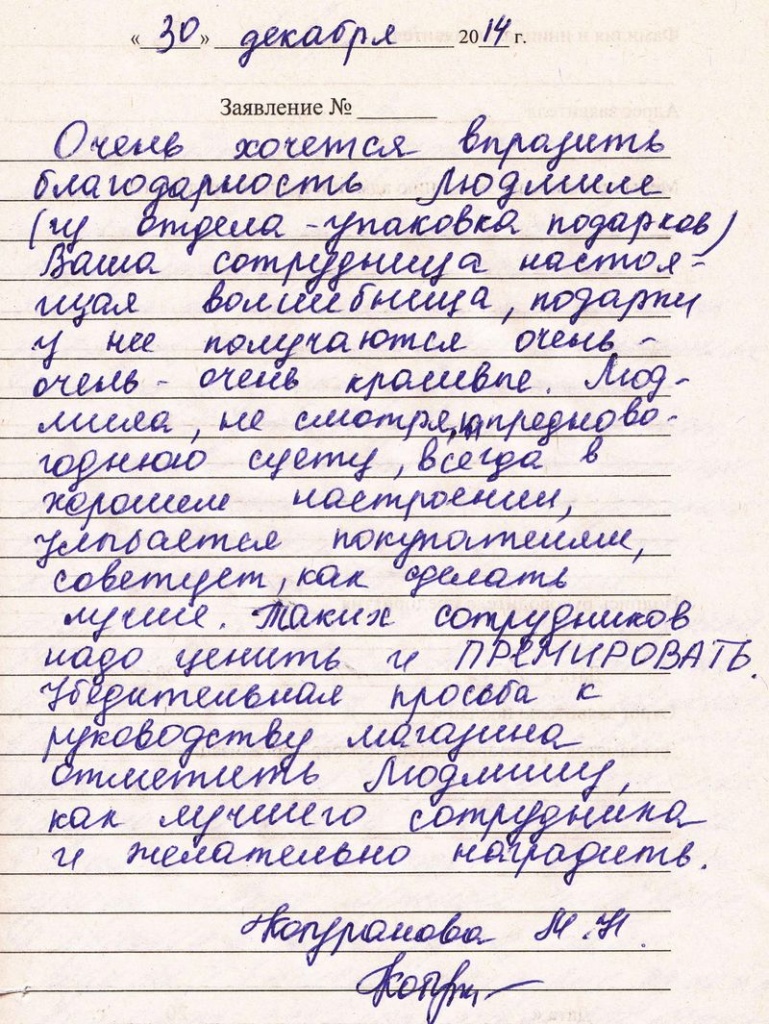 «30» декабря 2014 г.
Заявление №
Очень хочется выразить
благодарность Людмиле
(из отдела - упаковка подарков)
Ваша сотрудница настоя-
щая волшебница, подарки
у нее получаются очень-
очень-очень красивые. Люд-
мила, не смотря на предново-
годнюю суету, всегда в
хорошем настроении,
улыбается покупателям,
советует, как сделать
лучше. Таких сотрудников
надо ценить и ПРЕМИРОВАТЬ.
Убедительная просьба к
руководству магазина
отметить Людмилу,
как лучшего сотрудника
и желательно наградить.
М.Н.